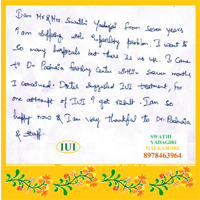 Iam Mr & Mrs. Swathi Yadagiri from seven years
I am suffering with infertility problem. I went to
so many hospitals but there is no use. I came
to Dr. Padmaja Fertility Center within seven months
I conceived. Doctor suggested IUI treatment, for
one attempt of IUI I got result. I am so
happy now & I am very thankful to Dr. Padmaja
& staff.
IUI
SWATHI
YADAGIRI
MALKAJGIRI
8978463964